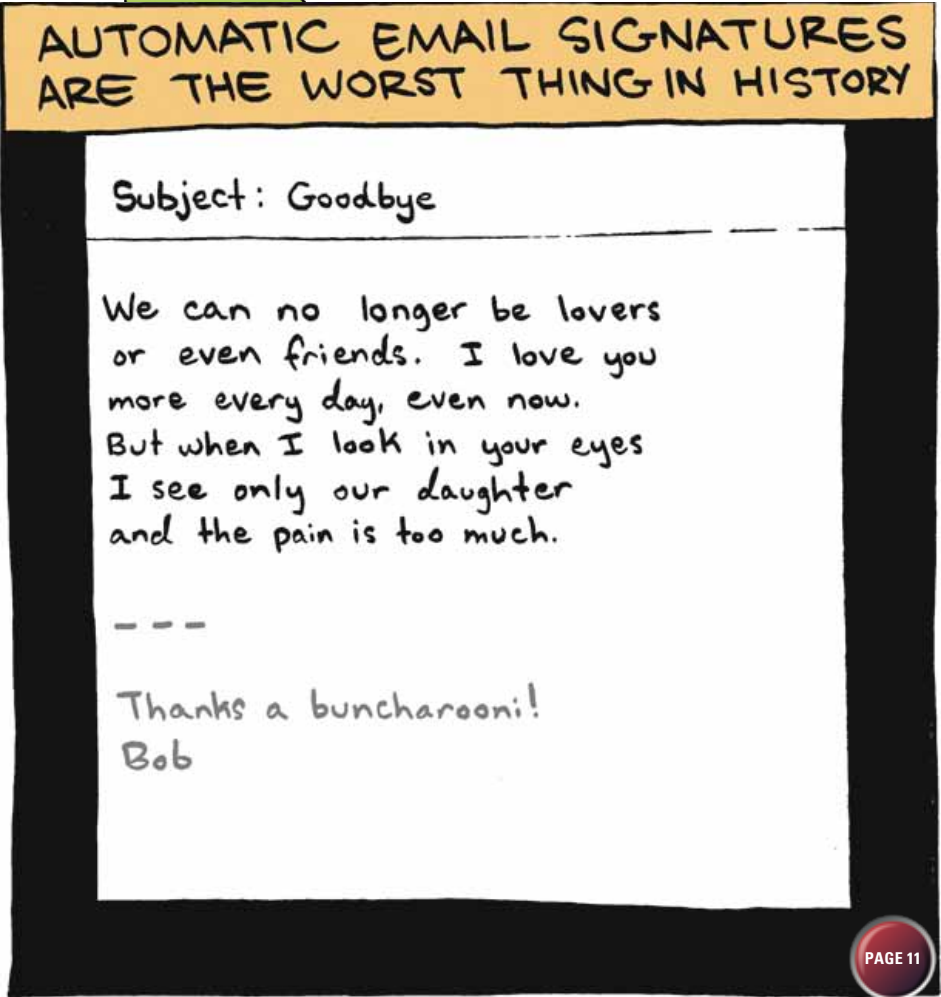 AUTOMATIC EMAIL SIGNATURES
ARE THE WORST THING IN HISTORY
Subject: Goodbye
We can no longer be lovers
or even friends. I love you
more every day, even now.
But when I look in your eyes
I see only our daughter
and the pain is too much.
---
Thanks a buncharooni!
Bob
PAGE 11